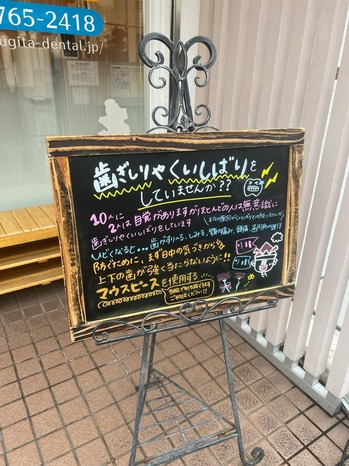 765-2418
ugita-dental.jp/
歯ぎしりやくいしばりを
していませんか??
10人に
2人は自覚がありますがほとんどの人は無意識に
歯ぎしりやくいしばりをしています
ひどくなると…歯がすりへる、しみる、顎の痛み、頭痛、
防ぐために、まず日中の気づきから
上下の歯が強く当たらないように!!
マウスピースを使用する…